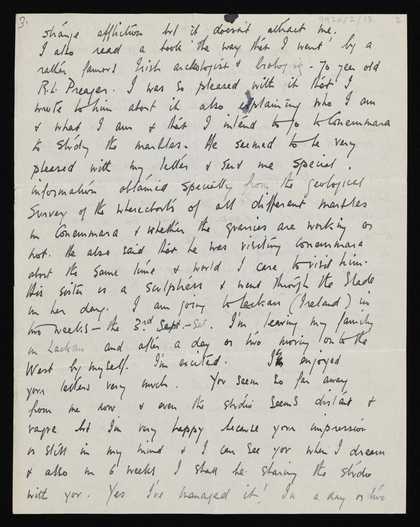 3.
9920/2/18. 2
strange affliction but it doesn't attract me.
I also read a book 'the way that I went' by a
rather famous Irish archeologist & - 70 year old
R.L. Preager. I was so pleased with it that I
wrote to him about it also explaining who I am
& what I am & that I intend to go to Connemara
to study the marbles. He seemed to be very
pleased with my letter & sent me special
information obtained specially from the geological
Survey of the whereabouts of all different marbles
in Connemara & whether the quarries are working or
not. He also said that he was visiting Connemara
about the same time & would I care to visit him.
His sister is a sculptress & went through the Slade
in her day. I am going to Lackan (Ireland) in
two weeks – the 3rd Sept. – Sat. I'm leaving my family
in Lackan and after a day or two moving on to the
West by myself. I'm excited. I enjoyed
your letters very much. You seem so far away
from me now, & even the studio seems distant &
vague but I'm very happy because your impression
is still in my mind & I can see you when I dream
& also in 6 weeks I shall be sharing the studio
with you. Yes I've managed it! In a day or two